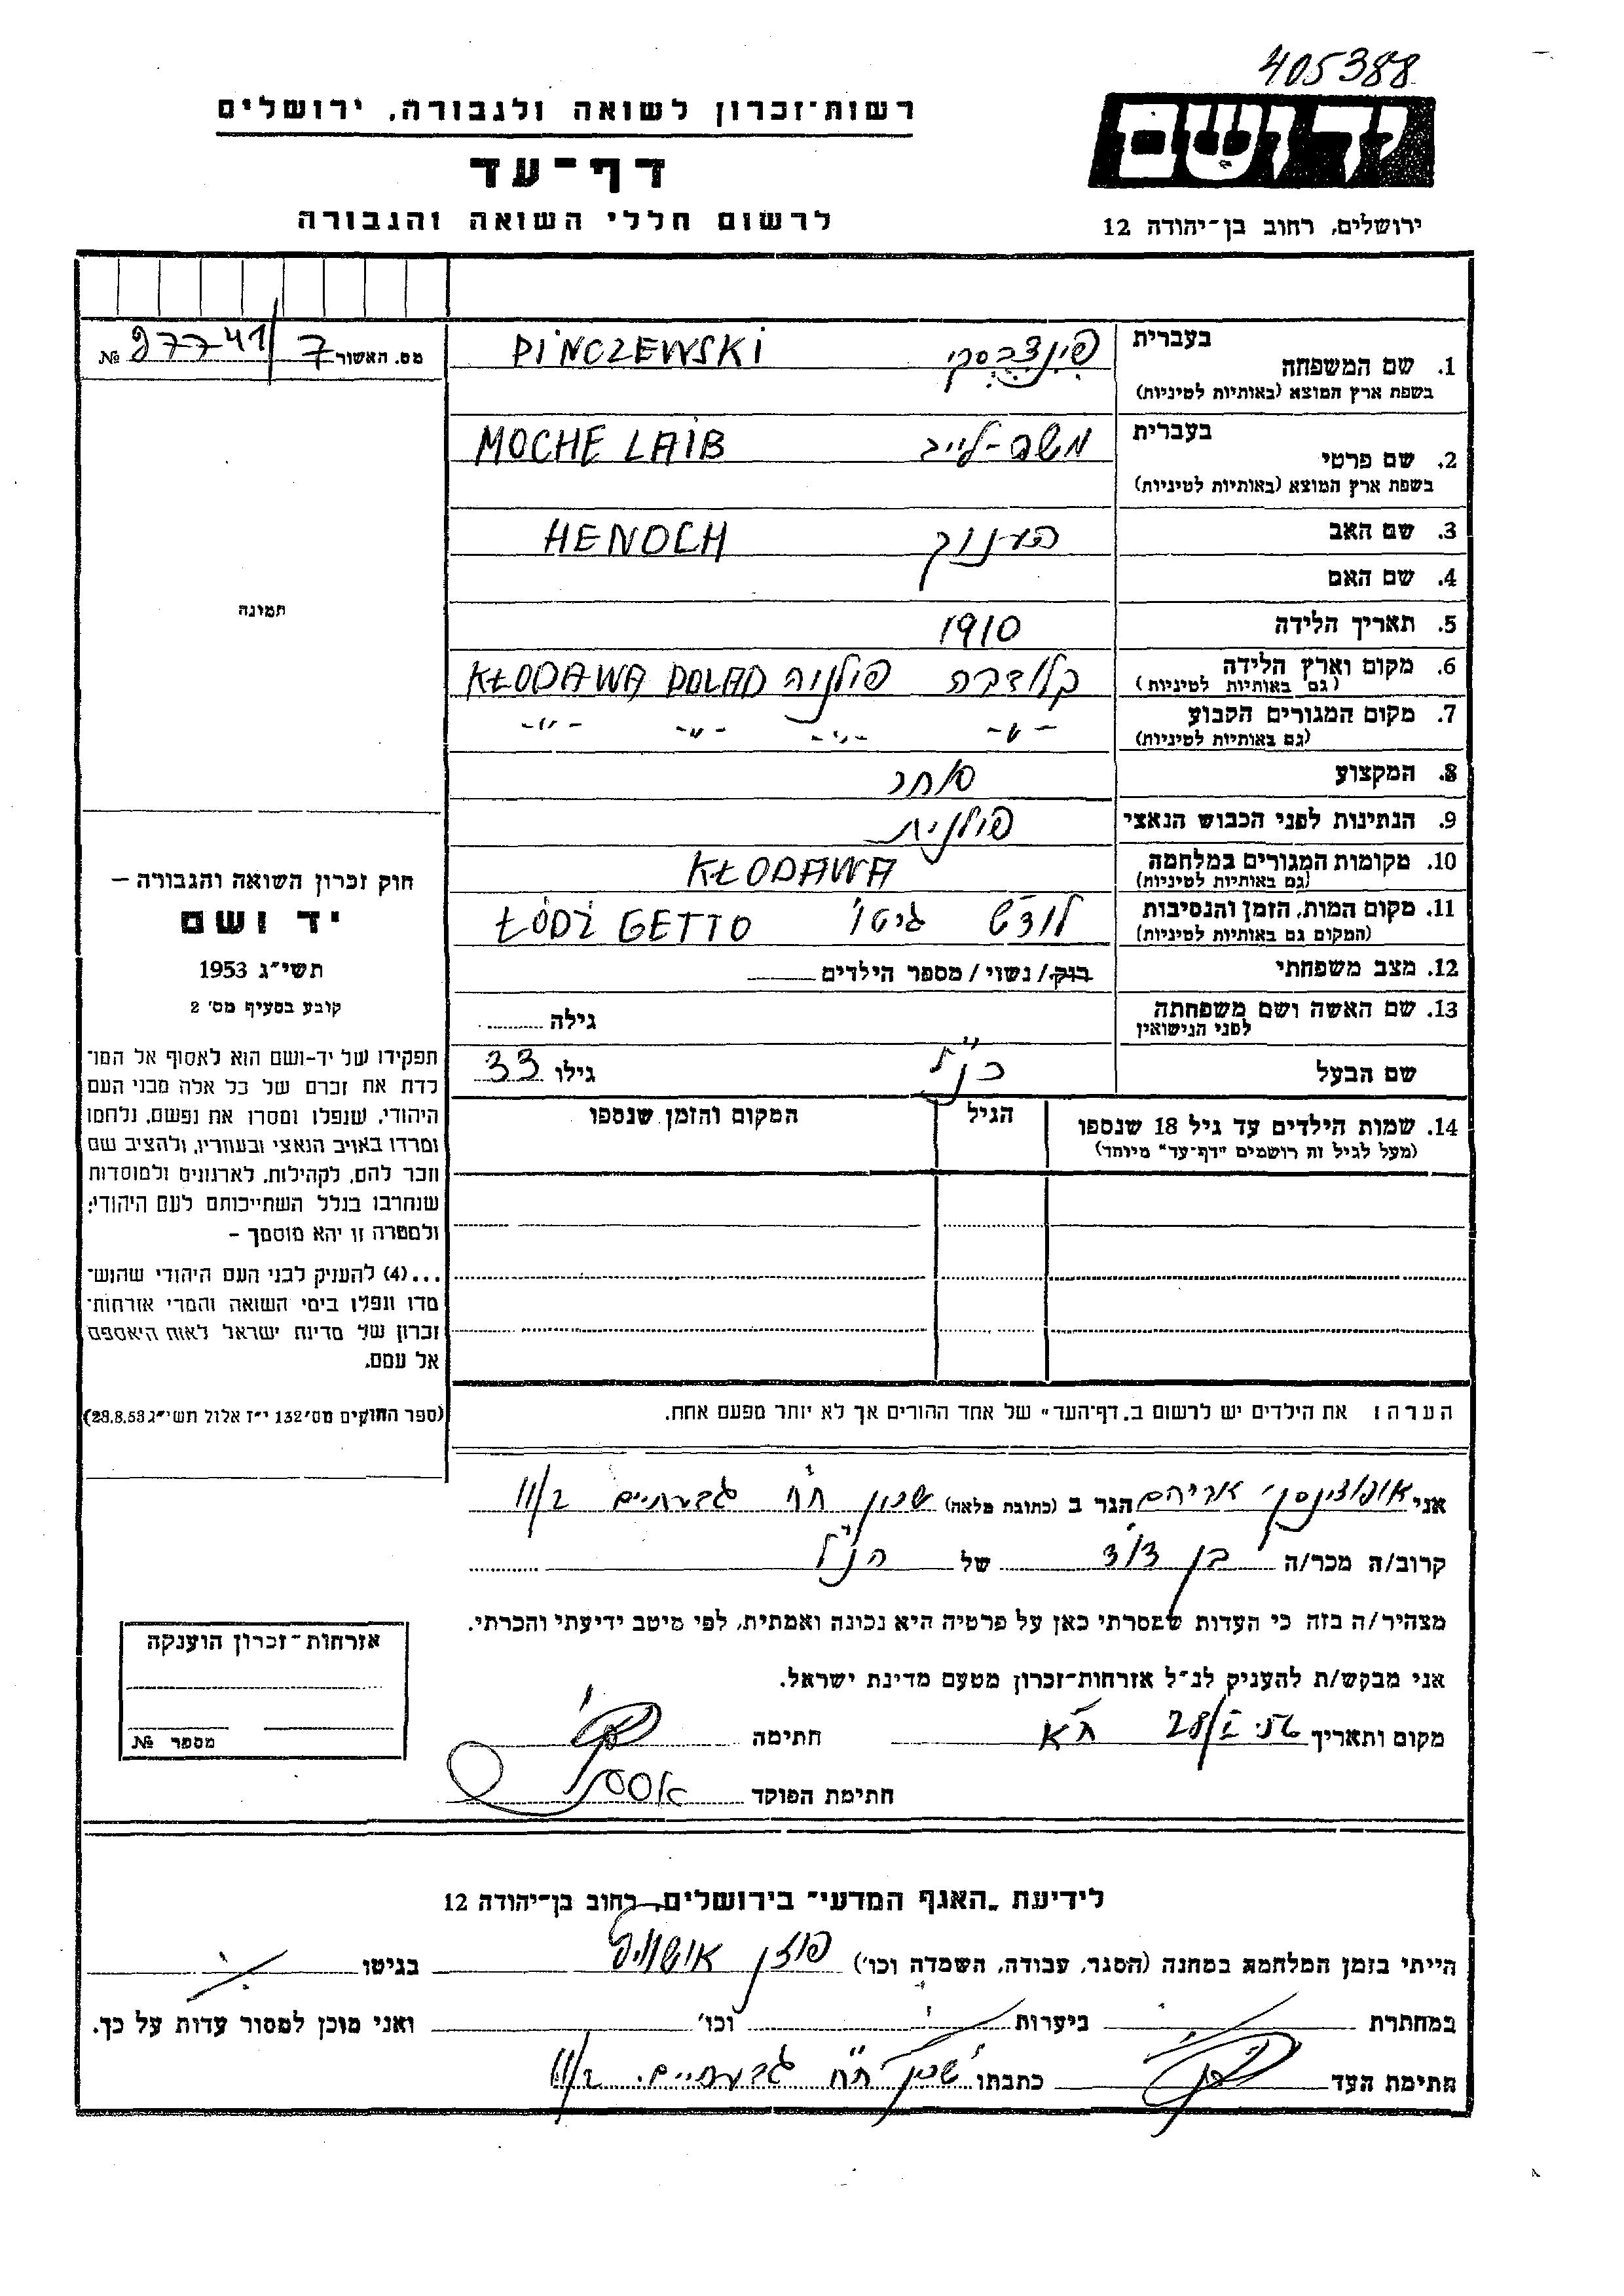 405388
יד ושם
ירושלים, רחוב בן־יהודה 12
רשות־זכרון לשואה ולגבורה, ירושלים
דף־עד
לרשום חללי השואה והגבורה
מס. האשור 7/97741 №
תמונה
חוק זכרון השואה והגבורה –
יד ושם
תשי״ג 1953
קובע בסעיף מס׳ 2
תפקידו של יד-ושם הוא לאסוף אל המו־
לדת את זכרם של כל אלה מבני העם
היהודי, שנפלו ומסרו את נפשם, נלחמו
ומרדו באויב הנאצי ובעוזריו, ולהציב שם
וזכר להם, לקהילות, לארגונים ולמוסדות
שנחרבו בגלל השתייכותם לעם היהודי;
ולמטרה זו יהא מוסמך –
...(4) להעניק לבני העם היהודי שהוש־
מדו ונפלו בימי השואה והמרי אזרחות־
זכרון של מדינת ישראל לאות היאספם
אל עמם.
(ספר החוקים מס׳ 132 י״ז אלול תשי״ג 28.8.53)
בעברית
1. שם המשפחה פינצבסקי PINCZEWSKI
בשפת ארץ המוצא (באותיות לטיניות)
בעברית
2. שם פרטי משה-לייב MOCHE LAIB
בשפת ארץ המוצא (באותיות לטיניות)
3. שם האב הענוך HENOCH
4. שם האם
5. תאריך הלידה 1910
6. מקום וארץ הלידה קלודבה פולניה KŁODAWA POLAD
(גם באותיות לטיניות)
7. מקום המגורים הקבוע -״- -״- -״- -״-
(גם באותיות לטיניות)
8. המקצוע סוחר
9. הנתינות לפני הכבוש הנאצי פולנית
10. מקומות המגורים במלחמה KŁODAWA
(גם באותיות לטיניות)
11. מקום המות, הזמן והנסיבות לודש גיטו ŁÓDŹ GETTO
(המקום גם באותיות לטיניות)
12. מצב משפחתי רוק/ נשוי/ מספר הילדים
13. שם האשה ושם משפחתה גילה
לפני הנישואין
שם הבעל כנ״ל גילו 33
14. שמות הילדים עד גיל 18 שנספו הגיל המקום והזמן שנספו
(מעל לגיל זה רושמים ״דף-עד״ מיוחד)
הערה: את הילדים יש לרשום ב„דף־העד״ של אחד ההורים אך לא יותר מפעם אחת.
אני אברהם הגר ב (כתובת מלאה) שכון ח״ח גבעתיים 11/2
קרוב/ה מכר/ה בן דוד של הנ״ל
מצהיר/ה בזה כי העדות שמסרתי כאן על פרטיה היא נכונה ואמתית, לפי מיטב ידיעתי והכרתי.
אני מבקש/ת להעניק לנ״ל אזרחות־זכרון מטעם מדינת ישראל.
מקום ותאריך 28/I 56. ת״א חתימה
חתימת הפוקד
אזרחות־זכרון הוענקה
מספר №
לידיעת „האגף המדעי״ בירושלים, רחוב בן־יהודה 12
הייתי בזמן המלחמה במחנה (הסגר, עבודה, השמדה וכו׳) פוזן אושוויץ בגיטו
במחתרת ביערות וכו׳ ואני מוכן למסור עדות על כך.
חתימת העד כתבתו שכון ח״ח גבעתיים. 11/2